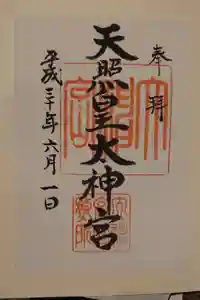 奉拝
天照皇大神宮
平成三十年六月一日